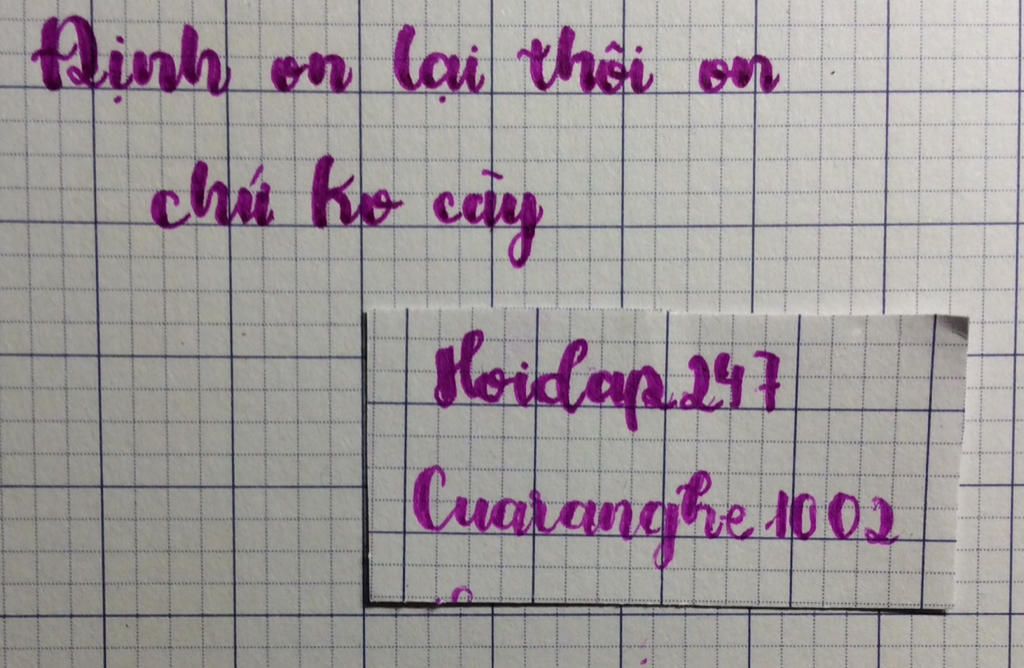 Định on lại thôi on
chứ ko cày
Hoidap247
Cuaranghe1002